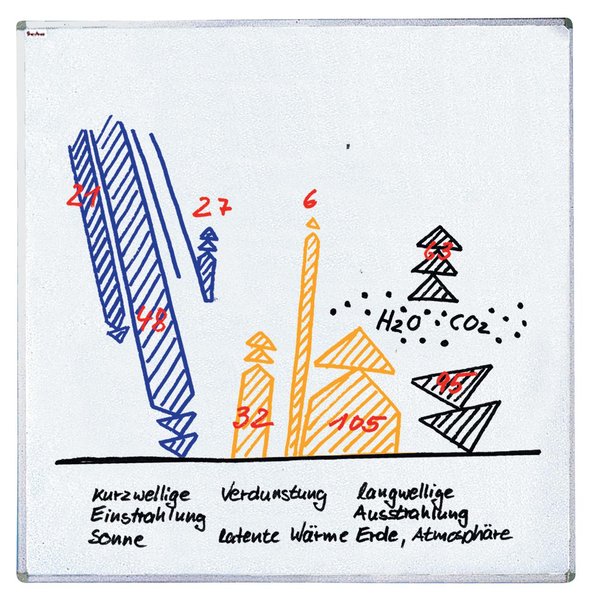 21
27
6
63
48
H2O CO2
95
32
105
Kurzwellige Verdunstung langwellige
Einstrahlung Ausstrahlung
Sonne latente Wärme Erde, Atmosphäre